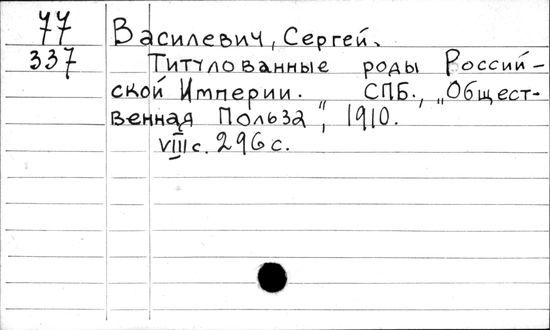 77 Василевич, Сергей.
337 Титулованные роды Россий-
ской Империи. СПБ., „Общест-
венная Польза", 1910.
VIII с. 296 с.